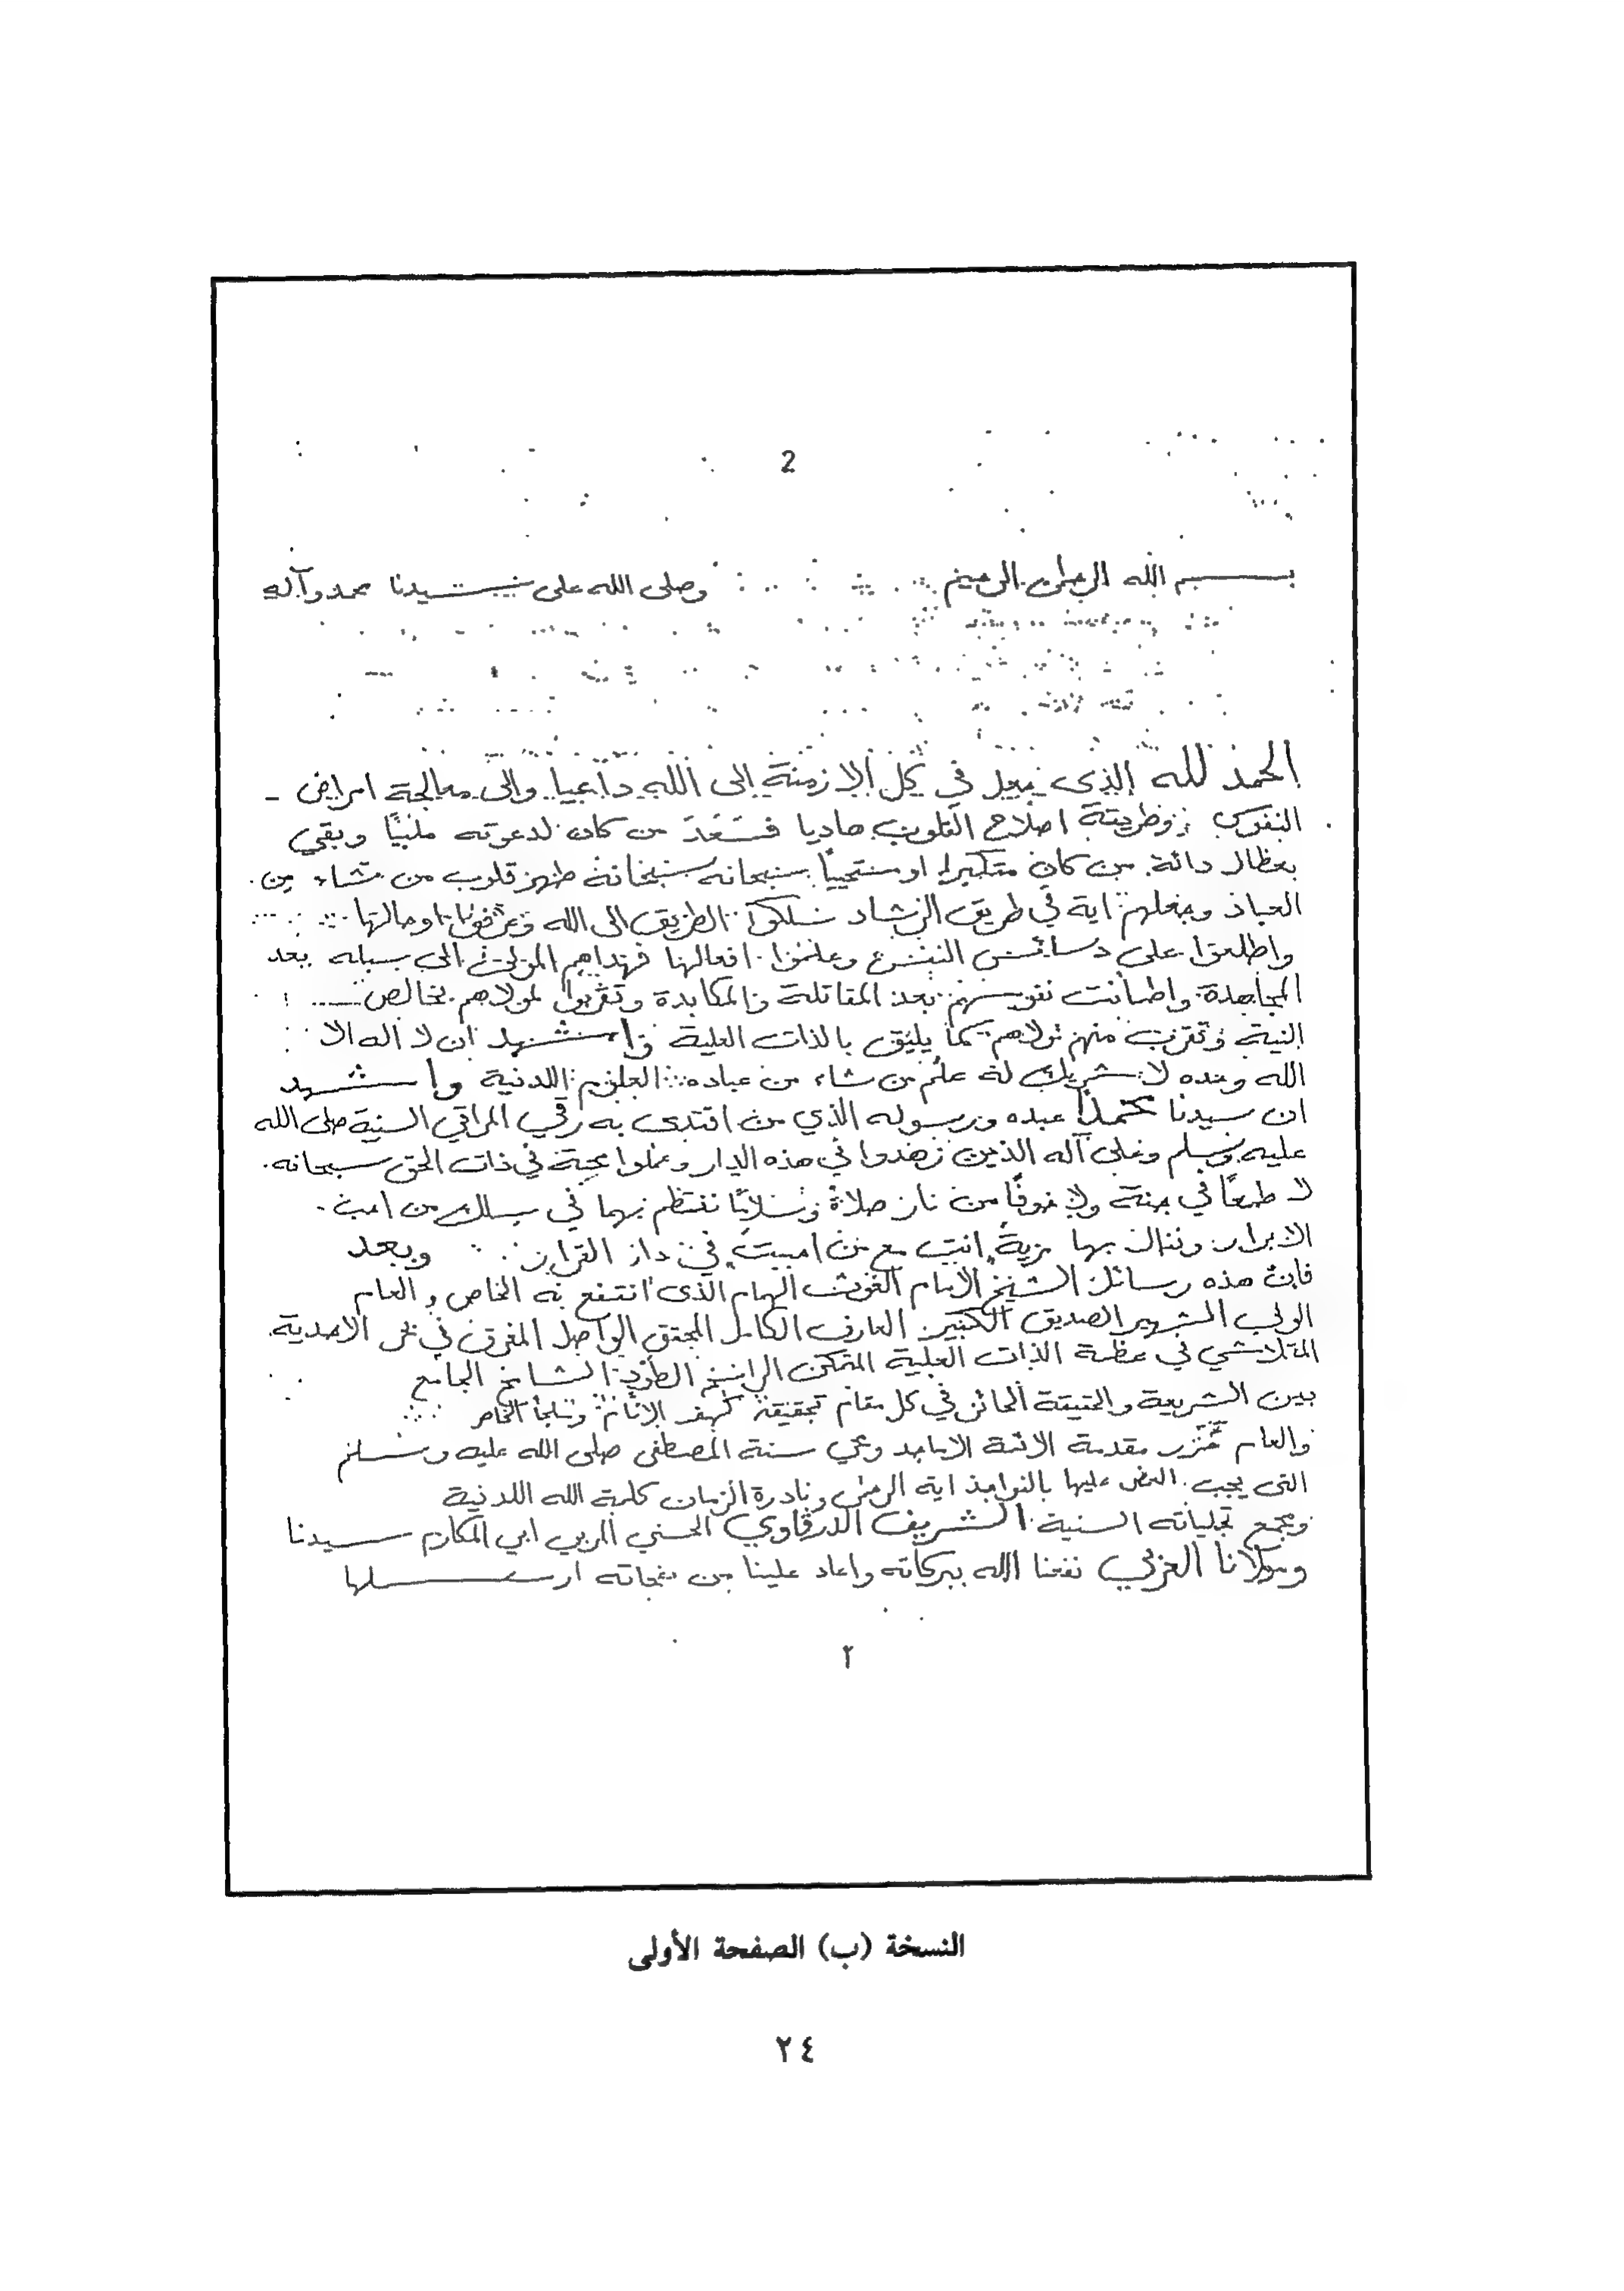 2
بسم الله الرحمان الرحيم وصلى الله على سيدنا محمد وآله
الحمد لله الذى جعل في كل الازمنة الى الله داعيا والى معالجة امراض -
النفوس وطريقة اصلاح القلوب هاديا فسعد من كان لدعوته ملبيا وبقي
دائه من كان متكبرا او مستحييا سبحانه سبحانه طهر قلوب من شاء من
العباد وجعلهم اية في طريق الرشاد سلكوا الطريق الى الله وعرفوا اوحالها
واطلعوا على دسائس النفس وعلموا افعالها فهداهم المولى الى سبله بعد
المجاهدة واطمأنت نفوسهم بعد المقاتلة والمكابدة وتقربوا لمولاهم بخالص
النية وتقرب منهم مولاهم كما يليق بالذات العلية واشهد ان لا اله الا
الله وحده لا شريك له علم من شاء من عباده العلوم اللدنية واشهد
ان سيدنا محمدا عبده ورسوله الذي من اقتدى به رقي المراقي السنية صلى الله
عليه وسلم وعلى آله الذين زهدوا في هذه الدار وعملوا محبة في ذات الحق سبحانه.
لا طمعا في جنة ولا خوفا من نار صلاة وسلاما ننتظم بهما في سلك من احب
الابرار وننال بها مزية انت مع من احببت في دار القرار وبعد
فان هذه رسائل الشيخ الامام الغوث الهمام الذى انتفع به الخاص والعام
الولي الشهير الصديق الكبير العارف الكامل المحقق الواصل المغروق في بحر الاحدية
المتلاشي في عظمة الذات العلية المتمكن الراسخ الطود الشامخ الجامع
بين الشريعة والحقيقة الحائز في كل مقام تحقيقه كهف الانام وملجأ الخاص
والعام مقدمة الائمة الاماجد ومحي سنة المصطفى صلى الله عليه وسلم
التى يجب العض عليها بالنواجذ اية الرحمن ونادرة الزمان كلمة الله اللدنية
ومجمع تجلياته السنية الشريف الدرقاوي الحسني المربي ابي المكارم سيدنا
ومولانا العربي نفعنا الله ببركاته واعاد علينا من نفحاته ارسلها
٢
النسخة (ب) الصفحة الأولى
٢٤